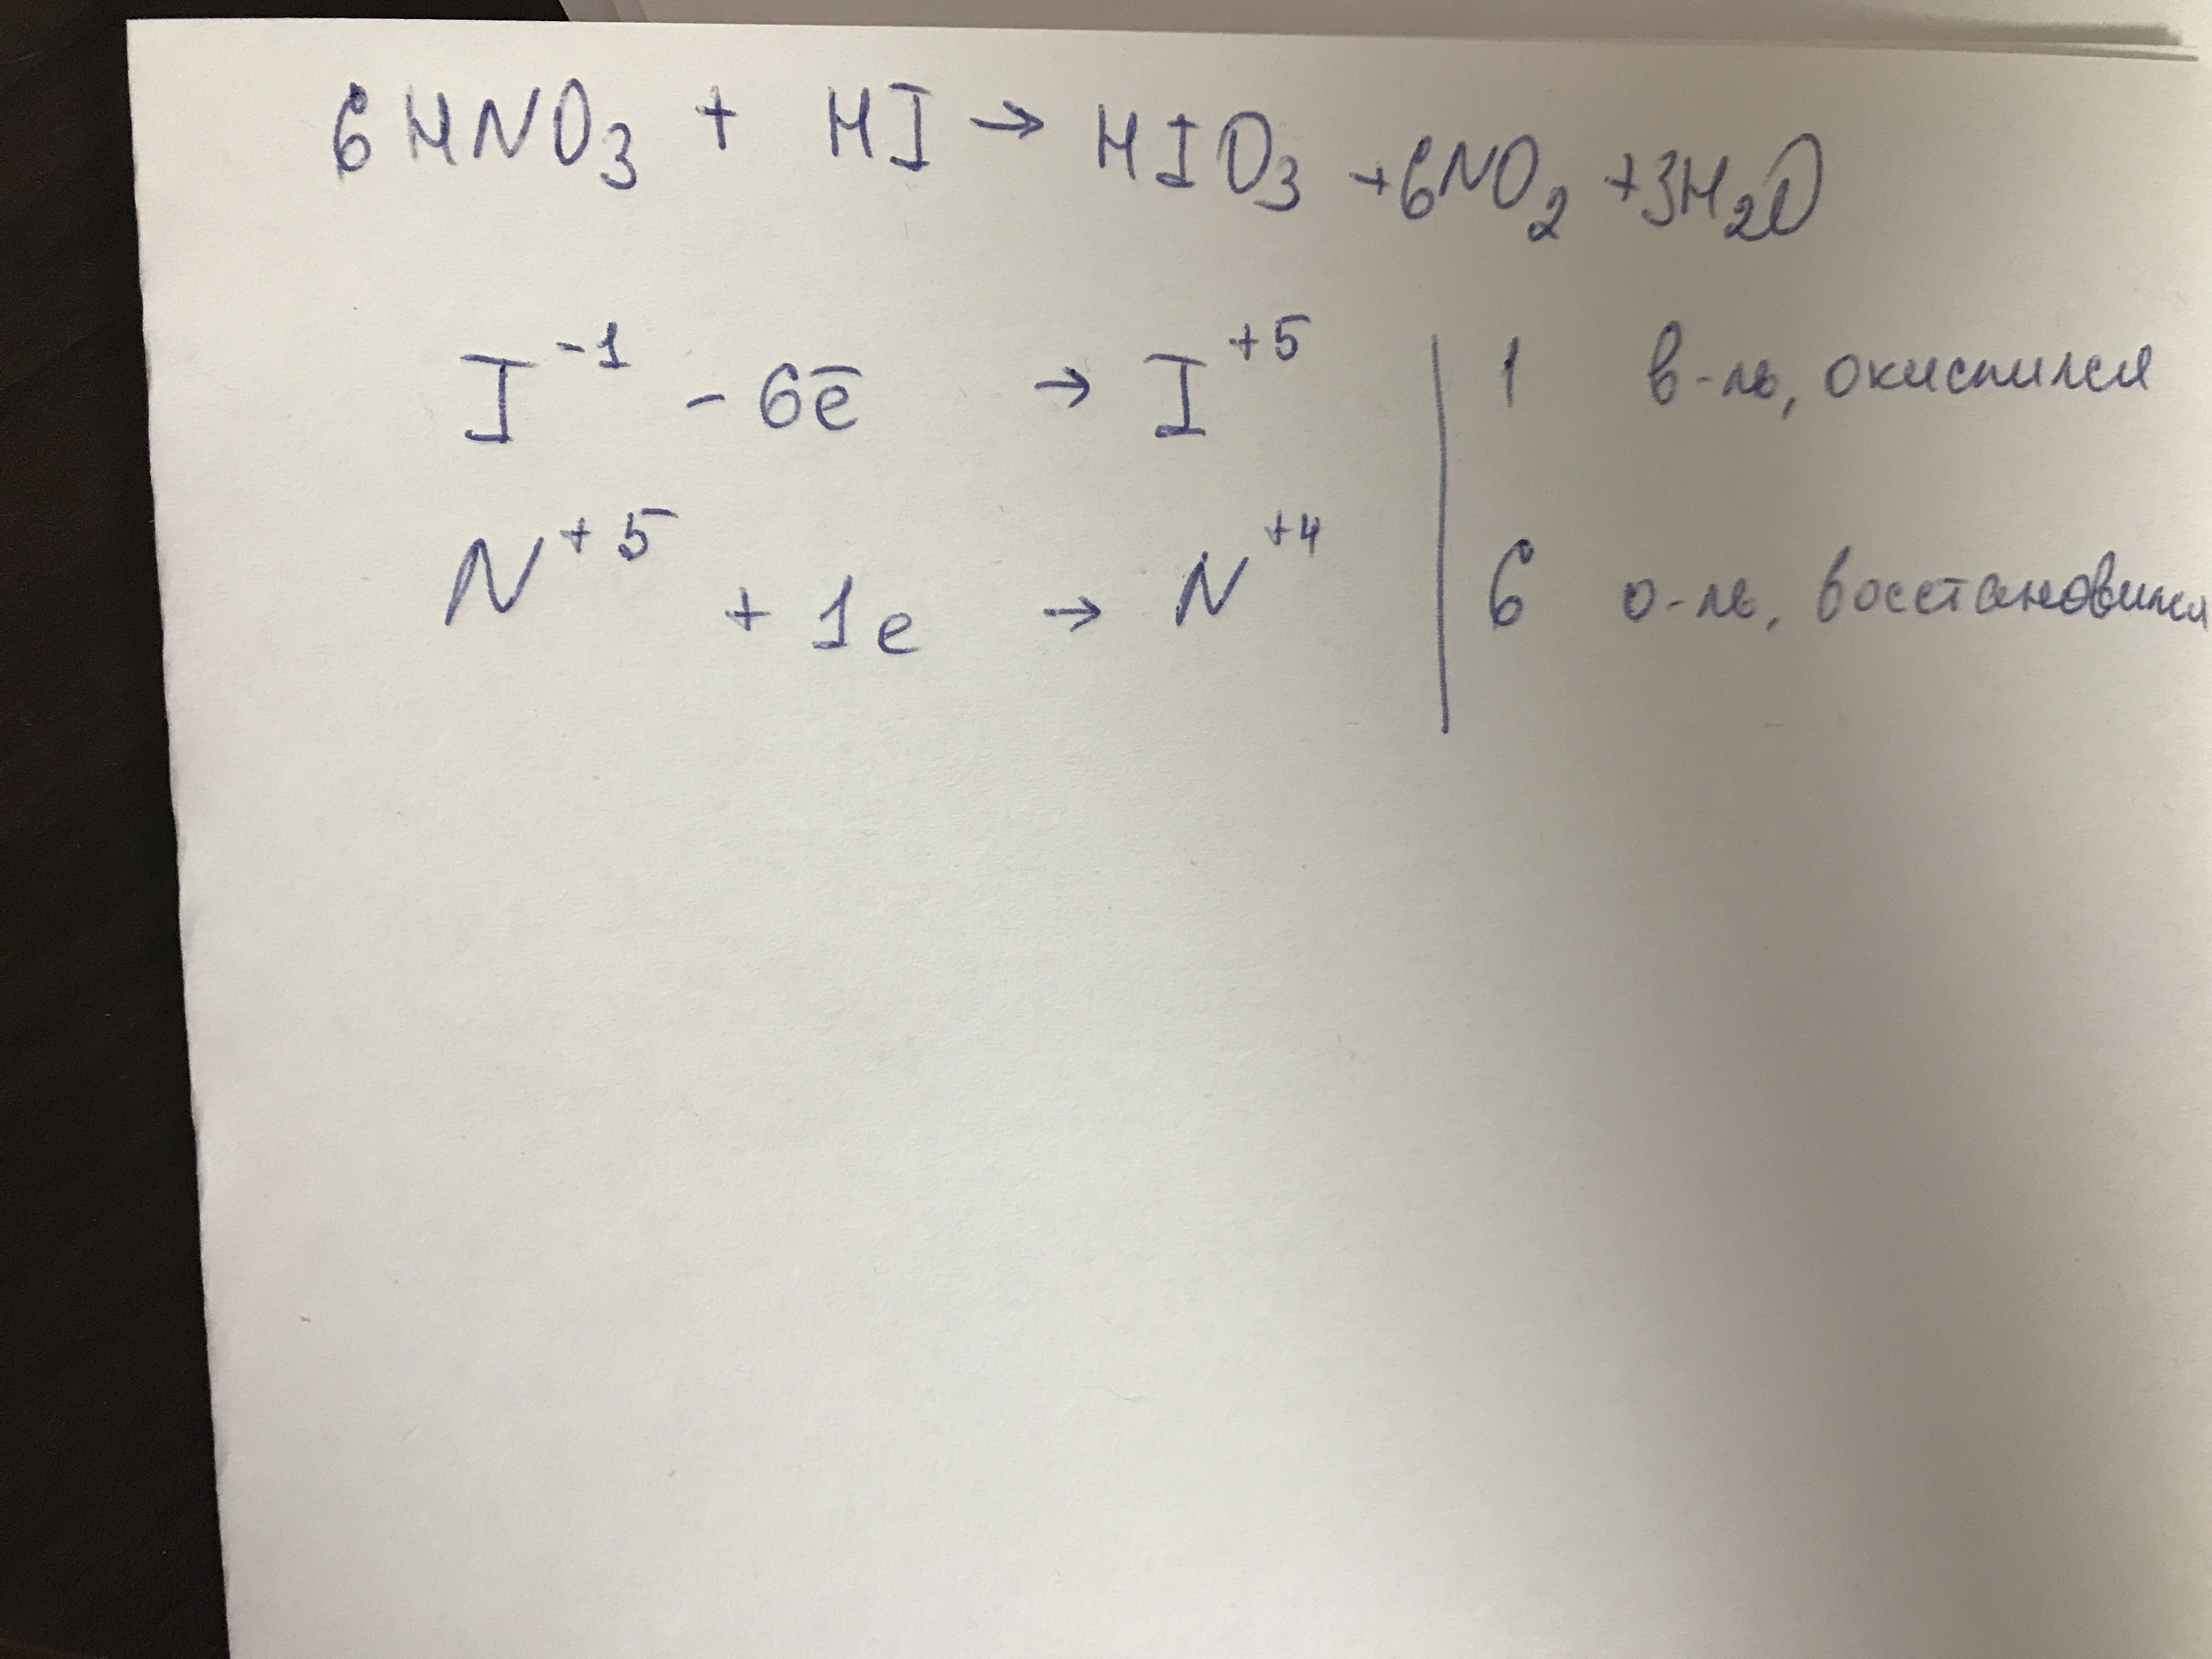 6HNO₃ + HI → HIO₃ + 6NO₂ + 3H₂O
I⁻¹ - 6ē → I⁺⁵ | 1 в-ль, окислился
N⁺⁵ + 1e → N⁺⁴ | 6 о-ль, восстановился